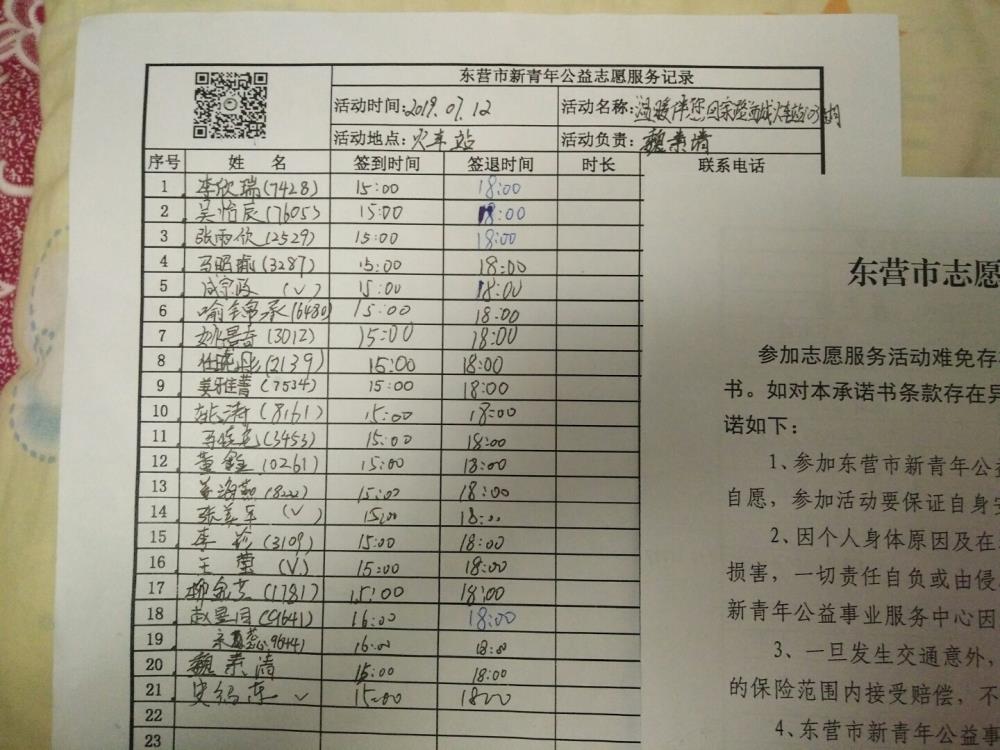 东营市新青年公益志愿服务记录
活动时间:2019.07.12 活动名称:温暖伴您回家
活动地点:火车站 活动负责:魏素清
序号 姓 名 签到时间 签退时间 时长 联系电话
1 李欣瑞(7428) 15:00 18:00
2 吴怡辰(7605) 15:00 18:00
3 张雨欣(2529) 15:00 18:00
4 马昭瑜(3287) 15:00 18:00
5 成宗政 (√) 15:00 18:00
6 喻锦承(6480) 15:00 18:00
7 (3012) 15:00 18:00
8 任晓彤(2139) 15:00 18:00
9 姜雅菁(7534) 15:00 18:00
10 (8161) 15:00 18:00
11 (3453) 15:00 18:00
12 董鑫(0261) 15:00 18:00
13 姜海燕(8222) 15:00 18:00
14 张美军(√) 15:00 18:00
15 李 (3109) 15:00 18:00
16 王 (√) 15:00 18:00
17 (1781) 15:00 18:00
18 (9641) 16:00 18:00
19 9644) 16:00 18:00
20 魏素清 15:00 18:00
21 √ 15:00 1800
22
23
东营市志愿
参加志愿服务活动难免存
书。如对本承诺书条款存在异
诺如下:
1、参加东营市新青年公益
自愿,参加活动要保证自身安
2、因个人身体原因及在
损害,一切责任自负或由侵
新青年公益事业服务中心因
3、一旦发生交通意外,
的保险范围内接受赔偿,不
4、东营市新青年公益事